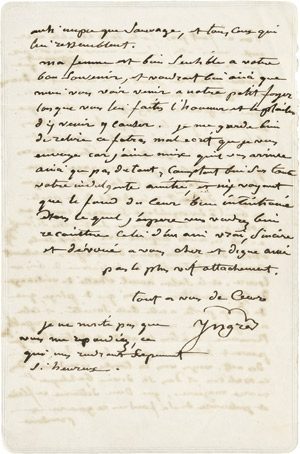 aussi impur que Sauvage, et tous ceux qui
lui ressemblent.
ma femme est bien sensible a votre
bon souvenir, et voudrait bien ainsi que
moi vous voir venir a notre petit foyer
lorsque vous lui faites l'honneur et le plaisir
d'y venir y causer. je me garde bien
de relire ce fatras mal ecrit que je vous
envoye car j'aime mieux qu'il vous arrive
ainsi que pas du tout, comptant bien sur toute
votre indulgente amitié, et n'y voyant
que le fond du Coeur bien intentionné
Dans lequel, j'espere vous voudrez bien
reconnitre Celui d'un ami vrai, Sincere
et dévoué a vous cher et digne ami
par le plus vif attachement.
tout a vous de Coeur
Ingres
je ne merite pas que
vous me repondiez, ce
qui me rendrait cependant
si heureux.